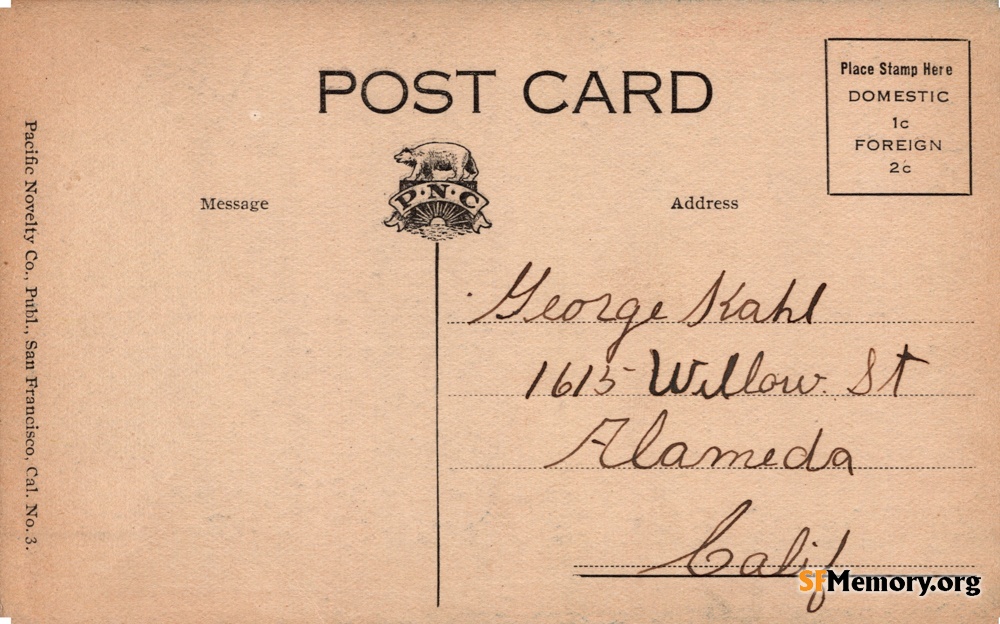 POST CARD
Place Stamp Here
DOMESTIC
1c
FOREIGN
2c
P·N·C
Message
Address
Pacific Novelty Co., Publ., San Francisco, Cal. No. 3.
George Kahl
1615 Willow St
Alameda
Calif
SFMemory.org